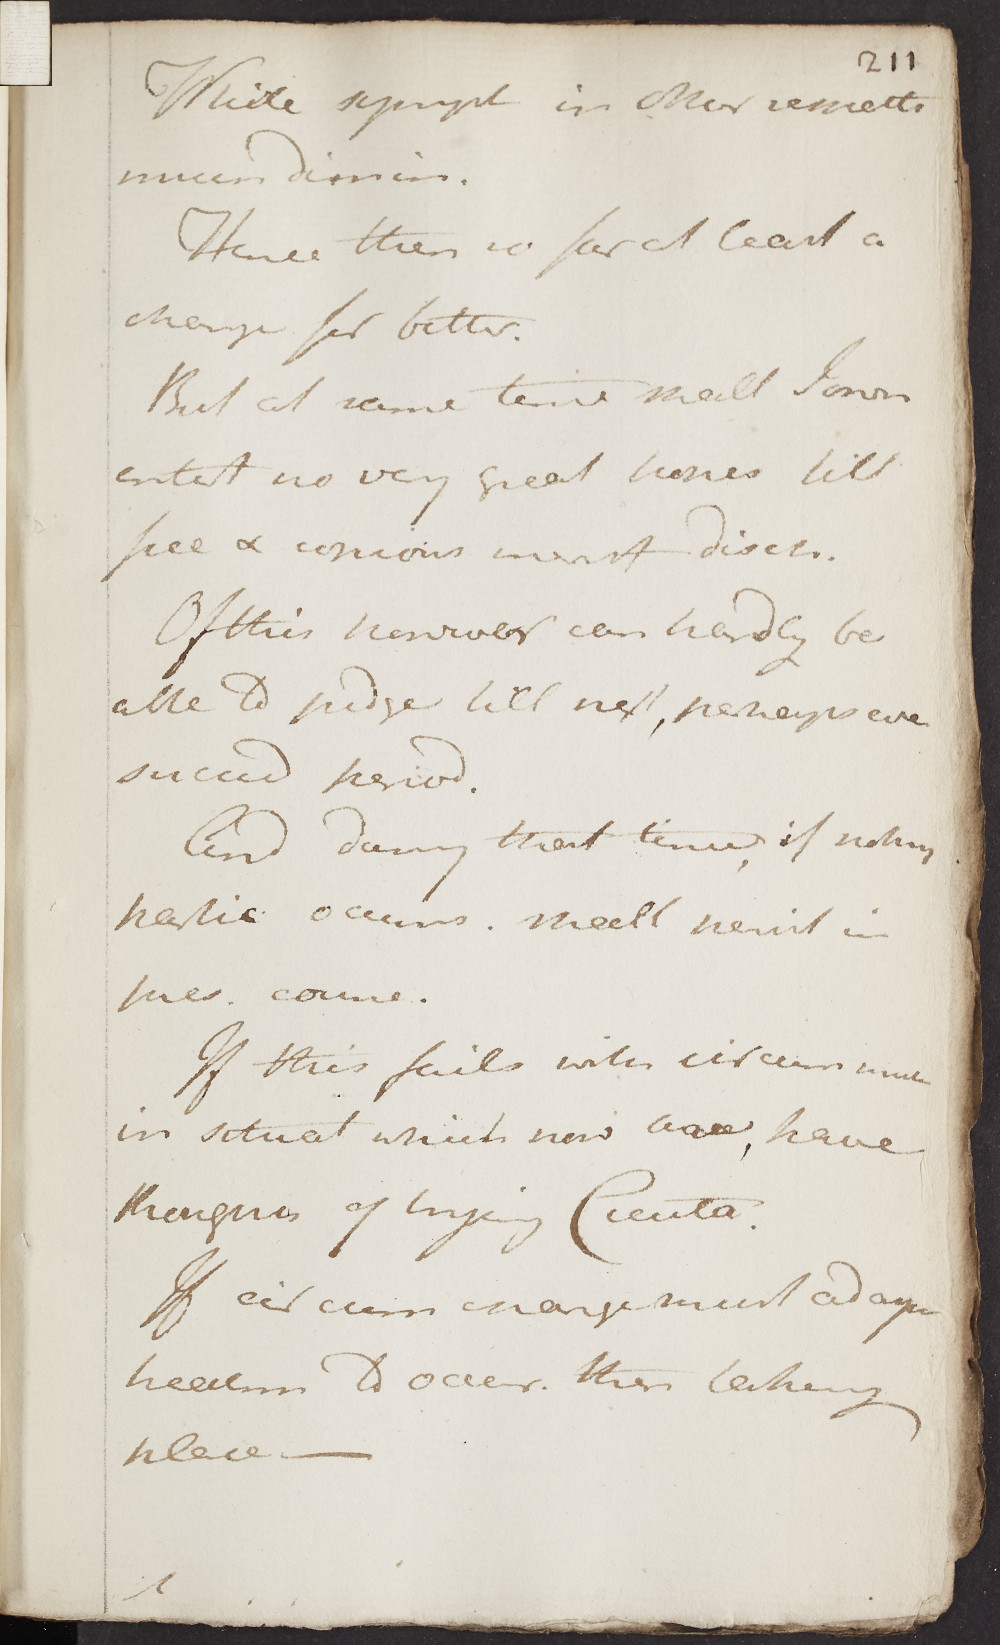 211
While sympt in other respects
much dimin.
Hence then so far at least a
change for better.
But at same time shall I own
entert no very great hopes till
free & copious menst disch.
Of this however can hardly be
able to judge till next, perhaps even
succeed period.
And during that time, if nothing
partic occurs. shall persist in
pres. course.
If this fails with circum much
in situat which now are, have
thoughts of trying Cicuta.
If circum change must adapt
treatm to occur. then taking
place —